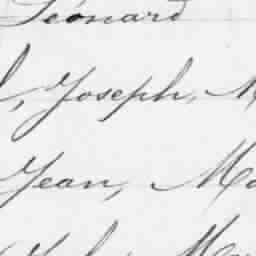 Léonard
, Joseph, M
Jean, Ma